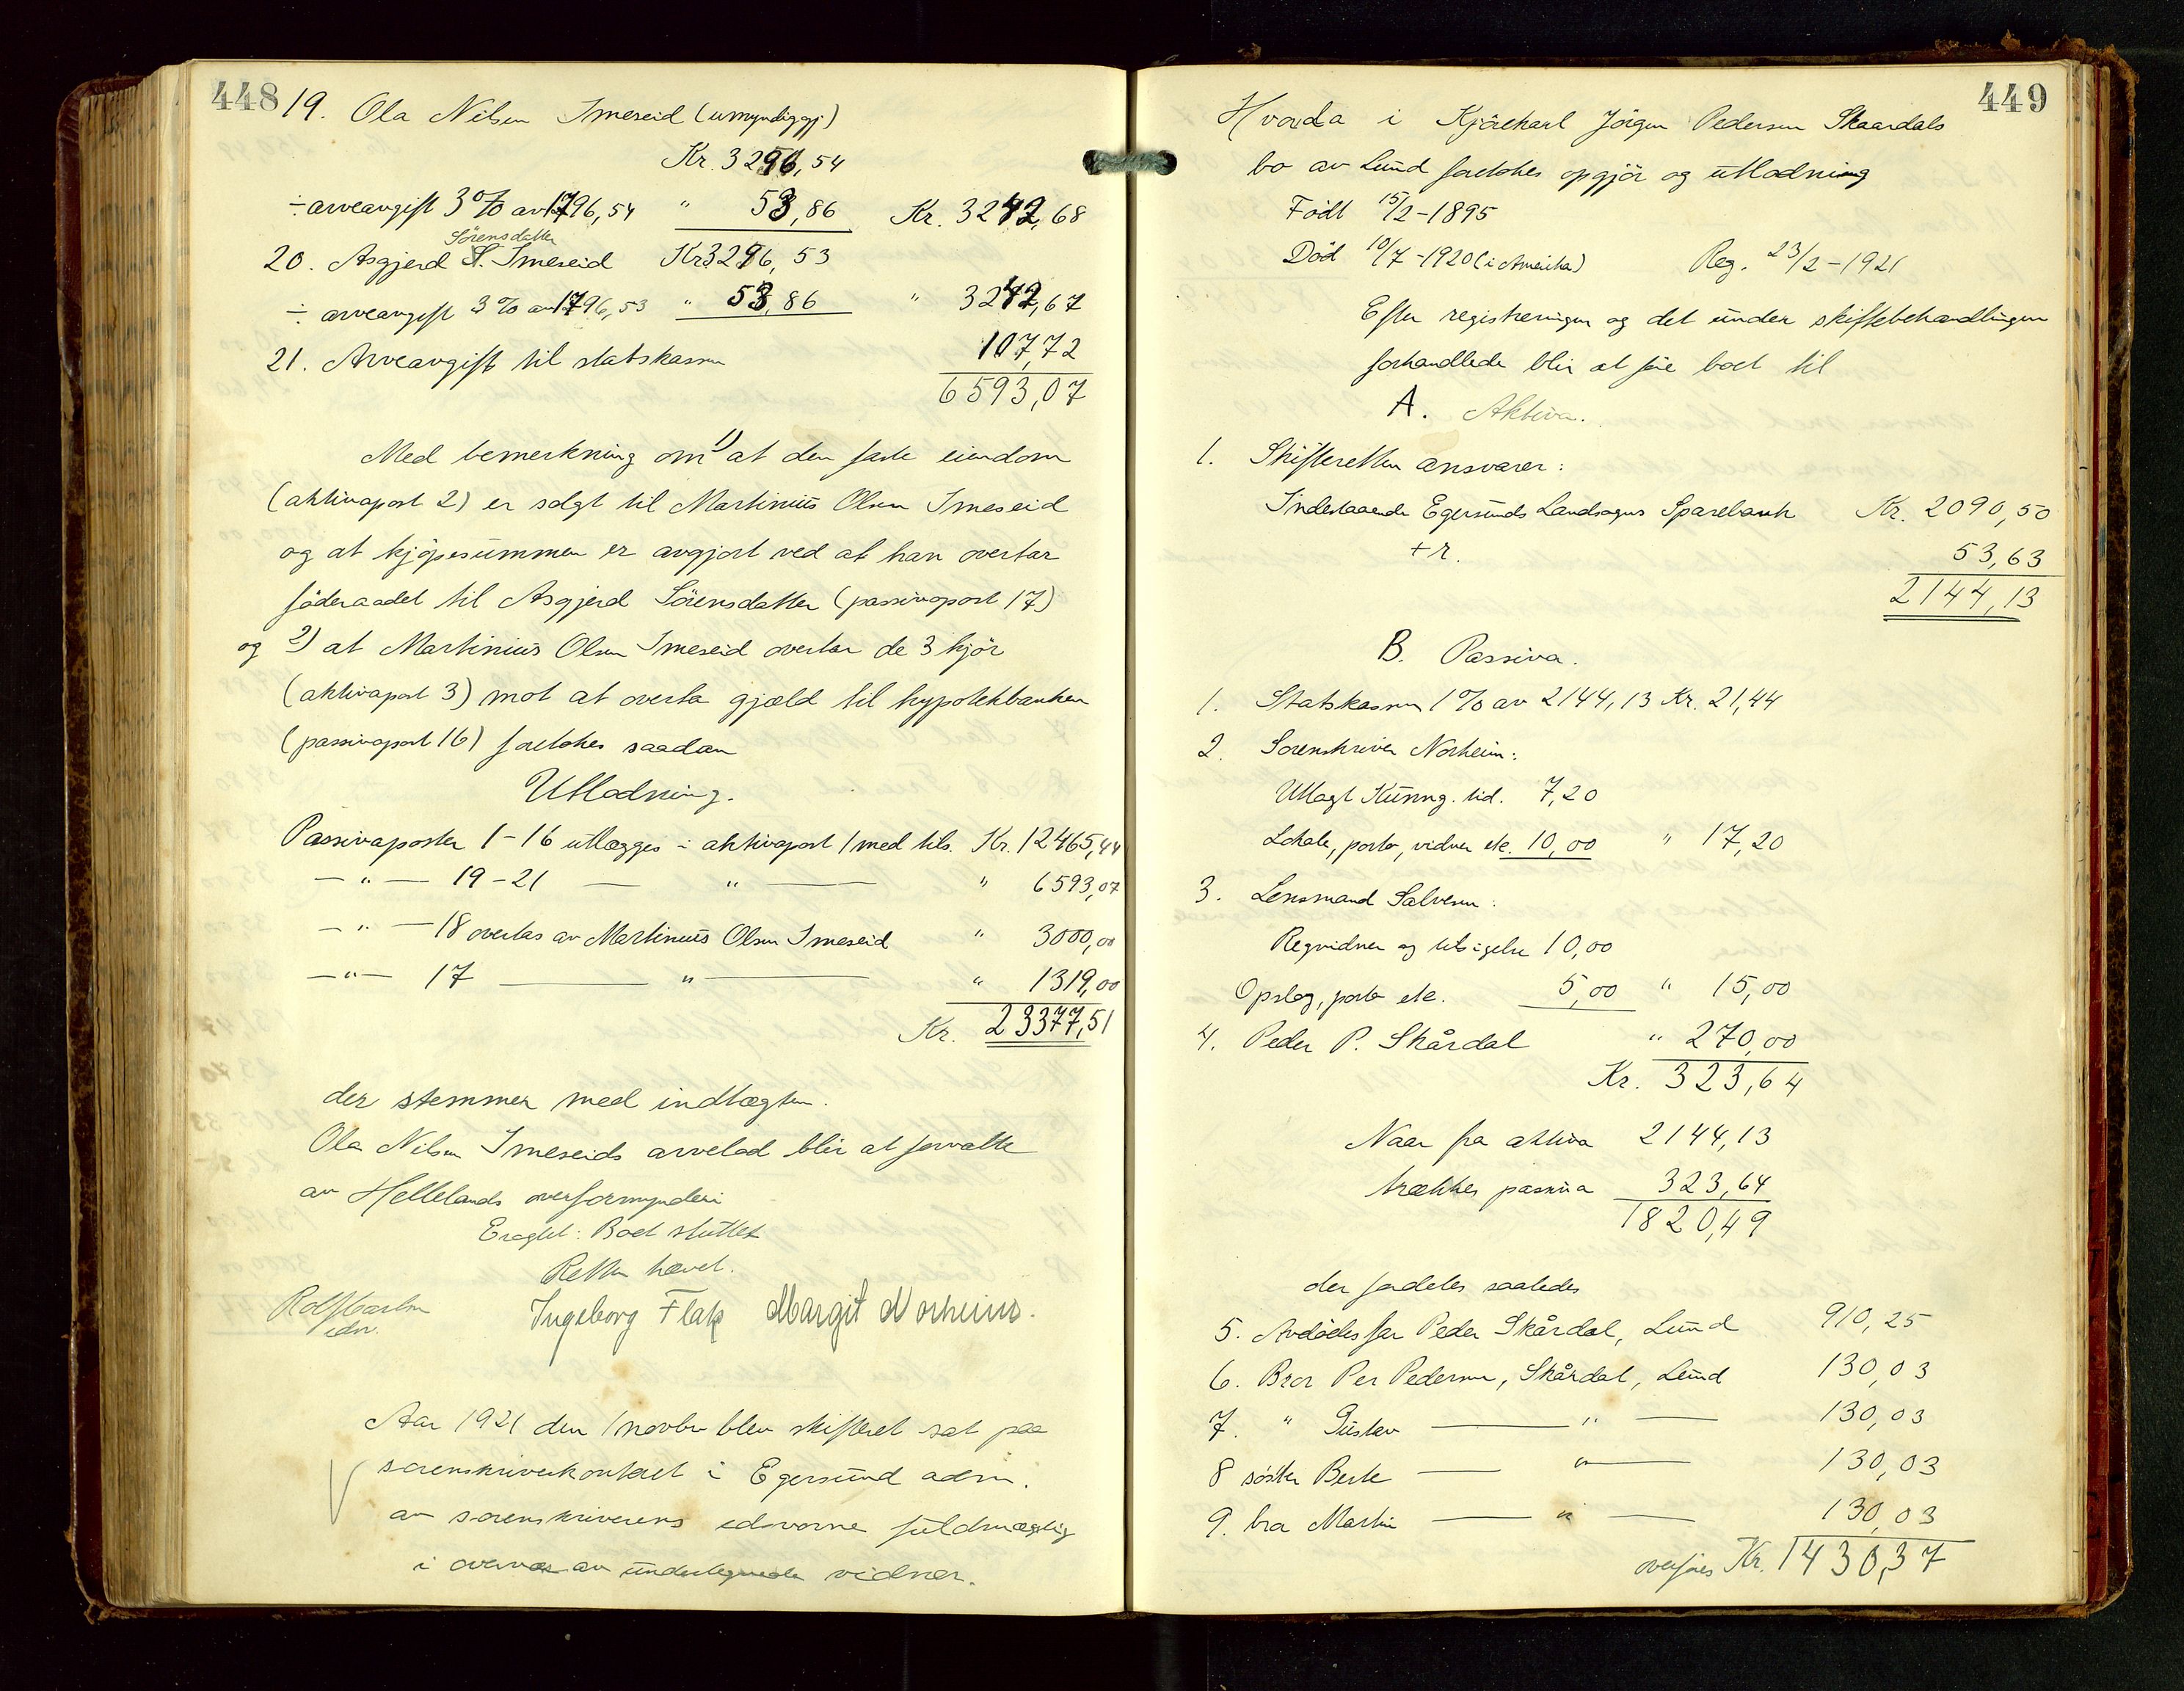 448
19. Ola Nilsen Imeseid (umyndiggj.)
Kr. 3296,54
÷ arveavgift 3% av 1796,54 " 53,86 Kr. 3242,68
Sörensdatter
20. Asgjerd S. Imeseid Kr 3296,53
÷ arveavgift 3% av 1796,53 " 53,86 " 3242,67
21. Arveavgift til statskassen 107,72
6593,07
Med bemerkning om 1) at den faste eiendom
(aktivapost 2) er solgt til Martinius Olsen Imeseid
og at kjöpesummen er avgjort ved at han overtar
föderaadet til Asgjerd Sörensdatter (passivapost 17)
og 2) at Martinius Olsen Imeseid overtar de 3 kjör
(aktivapost 3) mot at overta gjæld til hypotekbanken
(passivapost 16) foretokes saadan
Utlodning.
Passivaposter 1-16 utlægges i aktivapost 1 med tils. Kr. 12465,44
— " — 19-21 — " — " 6593,07
— " — 18 overtas av Martinius Olsen Imeseid " 3000,00
— " — 17 — " — " 1319,00
Kr. 23377,51
der stemmer med indtægten.
Ola Nilsen Imeseids arvelod blir at forvalte
av Hellelands overformynderi
Eragtet: Boet sluttet
Retten hævet.
edsv.
Ingeborg Flak Margit Norheim.
Aar 1921 den 1 novbr blev skifteret sat paa
sorenskriverkontoret i Egersund adm.
av sorenskriverens edsvorne fuldmægtig
i overvær av undertegnede vidner.
449
Hvorda i Kjörekarl Jörgen Pedersen Skaardals
bo av Lund foretokes opgjör og utlodning
Född 15/2-1895
Död 10/7-1920 (i Amerika) Reg. 23/2-1921
Efter registreringen og det under skiftebehandlingen
forhandlede blir at före boet til
A. Aktiva.
1. Skifteretten ansvarer:
Indestaaende Egersunds Landsogns Sparebank Kr. 2090,50
+ r. 53,63
2144,13
B. Passiva.
1. Statskassen 1% av 2144,13 Kr. 21,44
2. Sorenskriver Norheim:
Utlagt Kunng. tid. 7,20
Lokale, porto, vidner etc. 10,00 " 17,20
3. Lensmand Salvesen:
Reg vidner og utsigelse 10,00
Opslag, porto etc. 5,00 " 15,00
4. Peder P. Skårdal " 270,00
Kr. 323,64
Naar fra aktiva 2144,13
trækkes passiva 323,64
1820,49
der fordeles saaledes
5. Avdödes far Peder Skårdal, Lund 910,25
6. Bror Per Pedersen, Skårdal, Lund 130,03
7. " Gustav — " — 130,03
8 söster Berte — " — 130,03
9. bror Martin — " — 130,03
overföres Kr. 1430,37